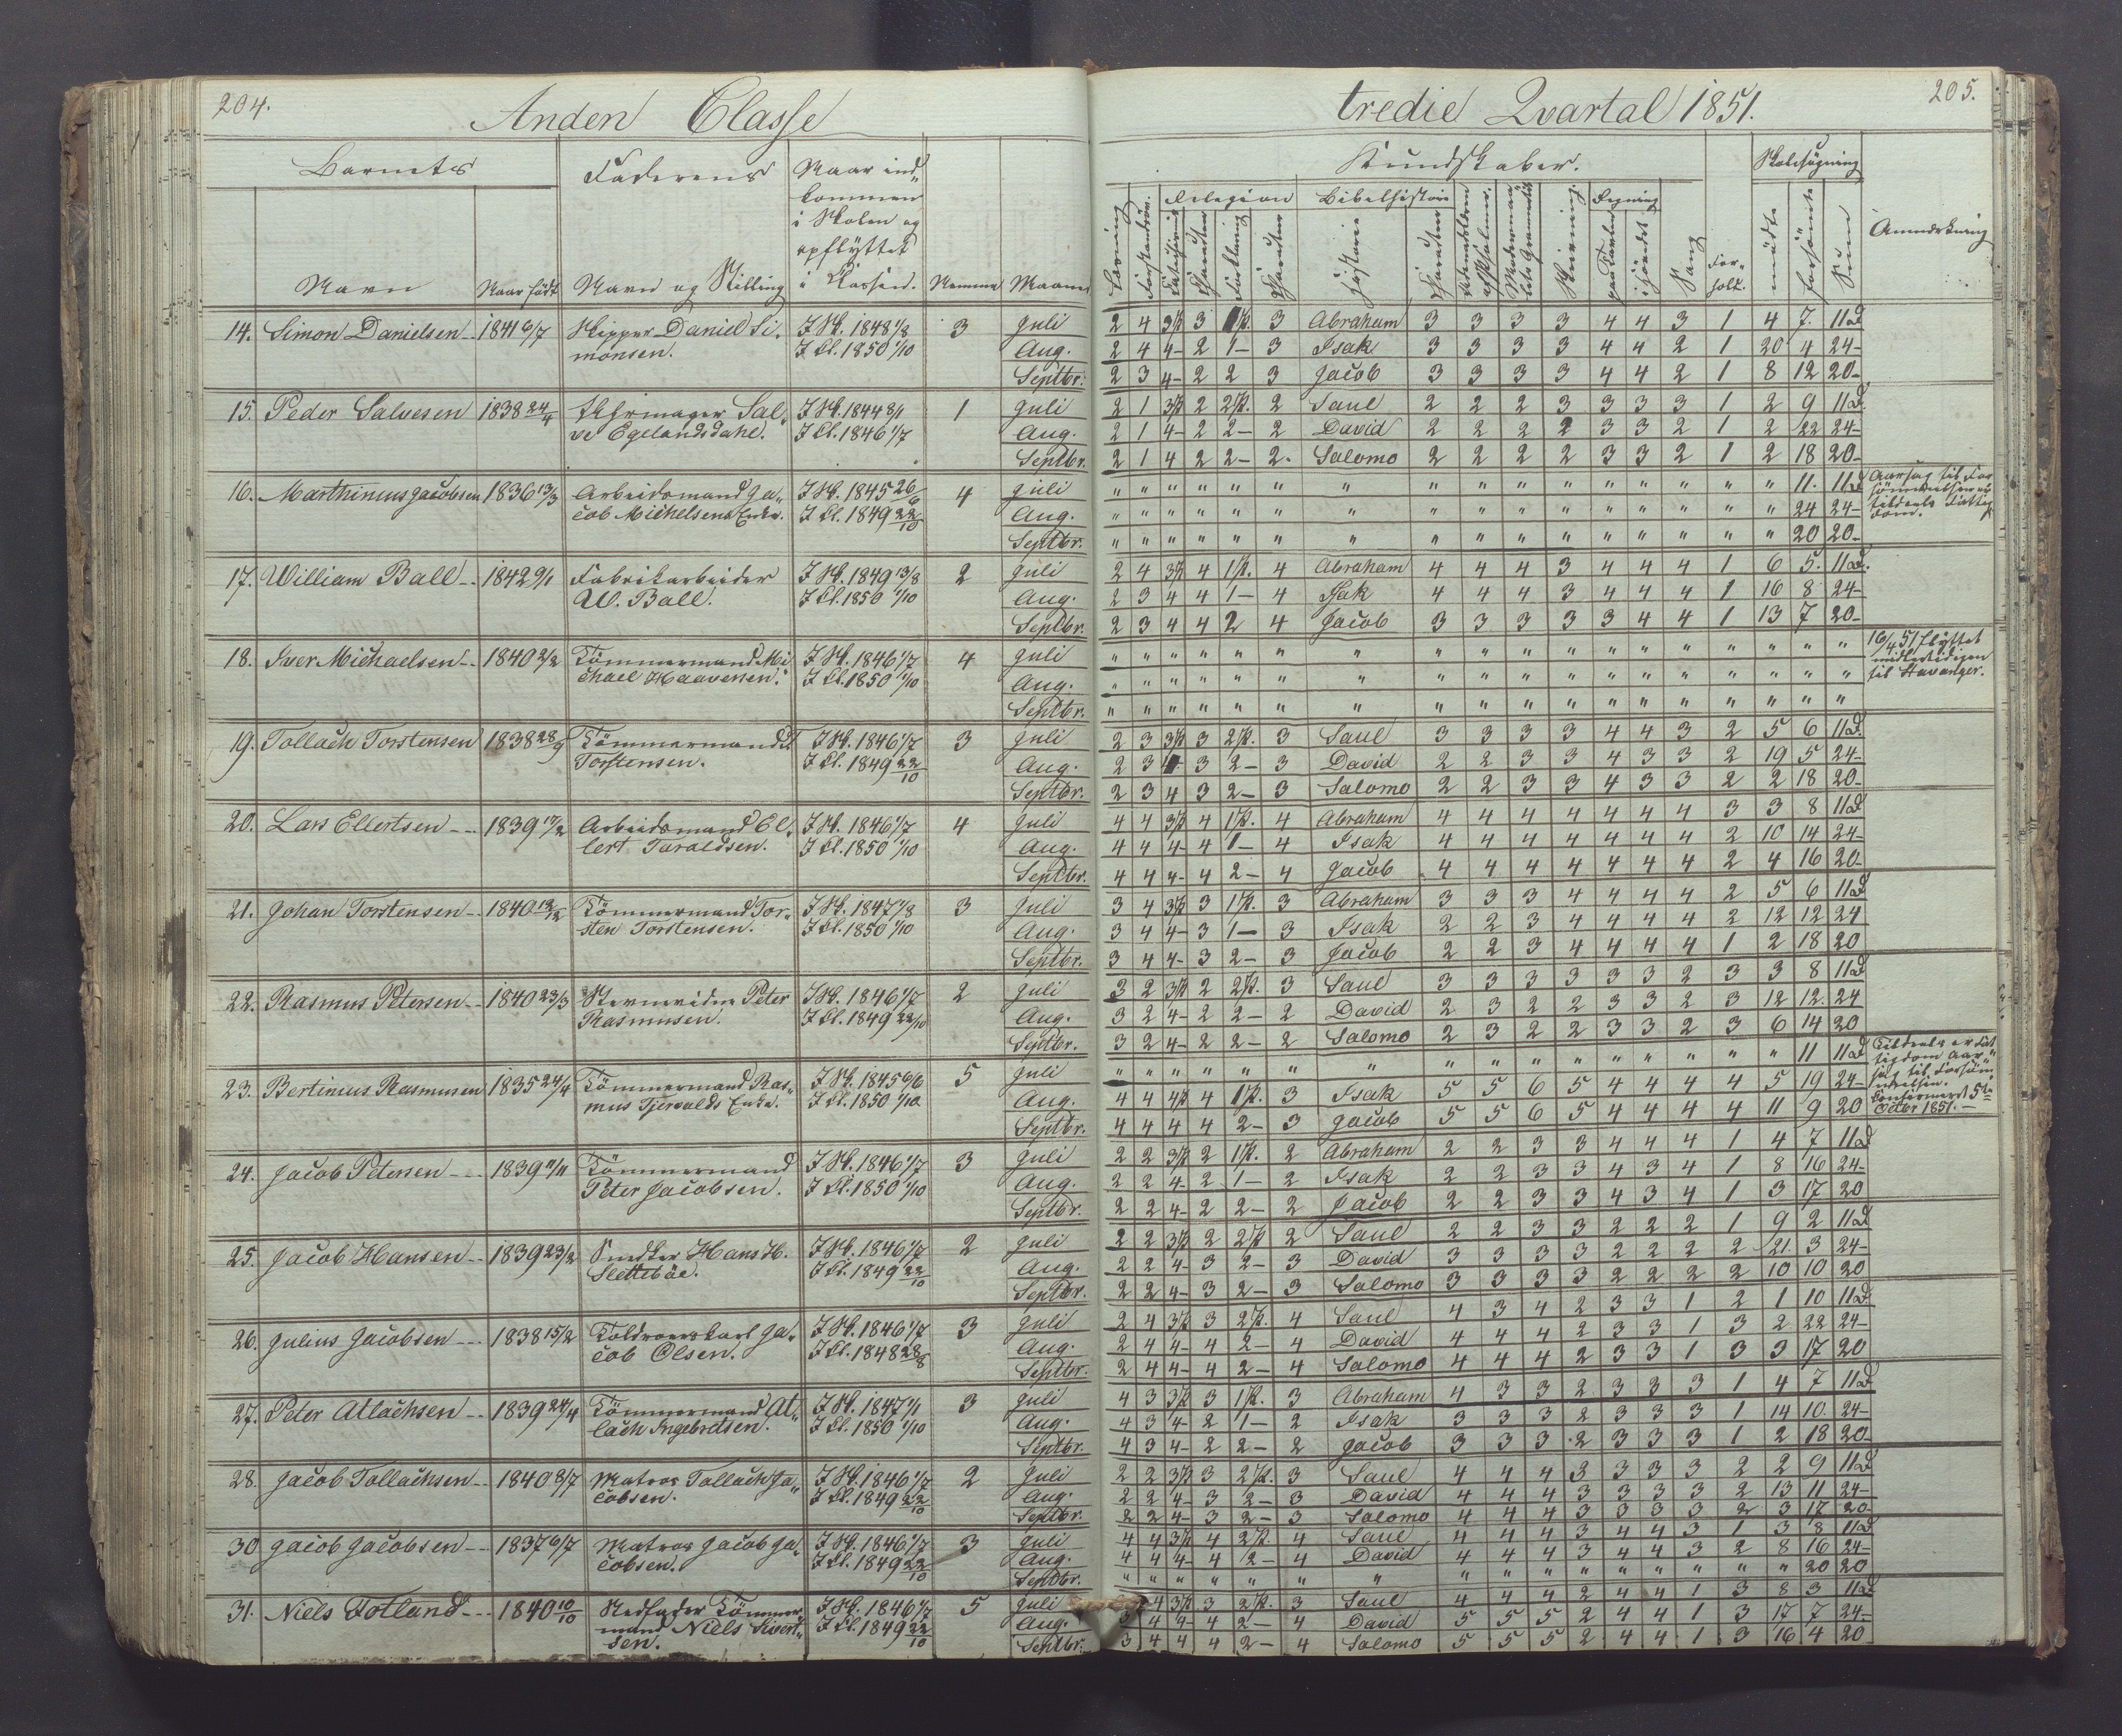 204.
Anden Classe
Barnets
Navn
Naar født
Faderens
Navn og Stilling
Naar ind-
kommen
i Skolen og
opflyttet
i Klassen.
Numme
Maaned
14. Simon Danielsen 1841 6/7 Skipper Daniel Si- I Sk. 1848 1/8 3 Juli
monsen. I Cl. 1850 1/10 Aug.
Septbr.
15. Peder Salvesen 1838 24/4 Sal- I Sk. 1844 8/1 1 Juli
ve Egelandsdahl. I Cl. 1846 1/7 Aug.
Septbr.
16. Marthinius Jacobsen 1836 13/3 Arbeidsmand Ja- I Sk. 1845 26/6 4 Juli
cob Michelsens Enke. I Cl. 1849 22/10 Aug.
Septbr.
17. William Ball 1842 9/1 Fabrikarbeider I Sk. 1849 13/8 2 Juli
W. Ball. I Cl. 1850 1/10 Aug.
Septbr.
18. Iver Michaelsen 1840 2/2 Tømmermand Mi- I Sk. 1846 1/7 4 Juli
chael Haaversen. I Cl. 1850 1/10 Aug.
Septbr.
19. Tollach Torstensen 1838 28/9 Tømmermand T. I Sk. 1846 1/7 3 Juli
Torstensen. I Cl. 1849 22/10 Aug.
Septbr.
20. Lars Ellertsen 1839 17/2 Arbeidsmand El- I Sk. 1846 1/7 4 Juli
lert Taraldsen. I Cl. 1850 1/10 Aug.
Septbr.
21. Johan Torstensen 1840 12/12 Tømmermand Tor- I Sk. 1847 1/8 3 Juli
sten Torstensen. I Cl. 1850 1/10 Aug.
Septbr.
22. Rasmus Petersen 1840 23/3 Peter I Sk. 1846 1/7 2 Juli
Rasmusen. I Cl. 1849 22/10 Aug.
Septbr.
23. Bertinius Rasmusen 1835 24/4 Tømmermand Ras- I Sk. 1845 6/6 5 Juli
mus Tjerwalds Enke. I Cl. 1850 1/10 Aug.
Septbr.
24. Jacob Petersen 1839 11/11 Tømmermand I Sk. 1846 1/7 3 Juli
Peter Jacobsen. I Cl. 1850 1/10 Aug.
Septbr.
25. Jacob Hansen 1839 23/2 Snedker Hans H. I Sk. 1846 1/7 2 Juli
Sletteböe. I Cl. 1849 22/10 Aug.
Septbr.
26. Julius Jacobsen 1838 15/2 Toldroerskarl Ja- I Sk. 1846 1/7 3 Juli
cob Olsen. I Cl. 1848 28/8 Aug.
Septbr.
27. Peter Atlachsen 1839 24/4 Tømmermand At- I Sk. 1847 1/1 3 Juli
lach Ingebretsen. I Cl. 1850 1/10 Aug.
Septbr.
28. Jacob Tollachsen 1840 8/7 Matros Tollach Ja- I Sk. 1846 1/7 2 Juli
cobsen. I Cl. 1849 22/10 Aug.
Septbr.
30 Jacob Jacobsen 1837 6/7 Matros Jacob Ja- I Sk. 1846 1/7 3 Juli
cobsen. I Cl. 1849 22/10 Aug.
Septbr.
31. Niels Fotland 1840 10/10 Stedfader Tømmer- I Sk. 1846 1/7 5 Juli
mand Niels Sivert- I Cl. 1849 22/10 Aug.
sen. Septbr.
tredie Qvartal 1851.
205.
Kundskaber.
Skolesøgning
Religion
Bibelhistorie
Regning
Læsning
Forstandsøv.
Karakter
Forklaring
Karakter
Historie
Karakter
Skrivning
paa Tavlen
i Hovedet
Sang
For-
hold.
mødte
forsømte
Sum
Anmærkning
2 4 3½ 3 1½. 3 Abraham 3 3 3 3 4 4 3 1 4 7. 11D
2 4 4- 2 1- 3 Isak 3 3 3 3 4 4 2 1 20 4 24-
2 3 4- 2 2 3 Jacob 3 3 3 3 4 4 2 1 8 12 20-
2 1 3½ 2 2½. 2 Saul 2 2 2 3 3 3 3 1 2 9 11D.
2 1 4- 2 2- 2 David 2 2 2 2 3 3 2 1 2 22 24-
2 1 4 2 2- 2. Salomo 2 2 2 2 3 3 2 1 2 18 20-
" " " " " " " " " " " " " " " " 11. 11D Aarsag til For-
sømmelserne
" " " " " " " " " " " " " " " " 24 24- tildeels Fattig-
dom.
" " " " " " " " " " " " " " " " 20 20-
2 4 3½ 4 1½. 4 Abraham 4 4 4 3 4 4 4 1 6 5. 11D.
2 3 4 4 1- 4 Isak 4 4 4 3 4 4 4 1 16 8 24-
2 3 4 4 2 4 Jacob 3 3 3 3 3 4 4 1 13 7 20-
" " " " " " " " " " " " " " " " " " 16/4 51 flyttet
midlertidigen
" " " " " " " " " " " " " " " " " " til Stavanger.
" " " " " " " " " " " " " " " " " "
2 3 3½ 3 2½. 3 Saul 3 3 3 3 4 4 3 2 5 6 11D.
2 3 4 3 2- 3 David 2 2 3 3 4 3 3 2 19 5 24-
2 3 4 3 2- 3 Salomo 2 2 3 3 4 3 3 2 2 18 20-
4 4 3½ 4 1½. 4 Abraham 4 4 4 4 4 4 4 3 3 8 11D
4 4 4- 4 1- 4 Isak 4 4 4 4 4 4 4 2 10 14 24-
4 4 4- 4 2- 4 Jacob 4 4 4 4 4 4 4 2 4 16 20-
3 4 3½ 3 1½. 3 Abraham 3 3 3 4 4 4 4 2 5 6 11D
3 4 4- 3 1- 3 Isak 2 2 3 4 4 4 4 2 12 12 24
3 4 4- 3 2- 3 Jacob 2 2 3 4 4 4 4 1 2 18 20
3 2 3½ 2 2½. 3 Saul 3 3 3 3 3 3 2 3 3 8 11D
3 2 4- 2 2- 2 David 2 3 2 2 3 3 2 3 12 12. 24
3 2 4- 2 2- 2 Salomo 2 3 2 2 3 3 2 3 6 14 20
" " " " " " " " " " " " " " " " 11 11D Tildeels er Fat-
tigdom Aar-
sag til Forsøm-
melsen.
4 4 4½ 4 1½. 3 Isak 5 5 6 5 4 4 4 4 5 19 24-
Confirmeret 5te
4 4 4 4 2- 3 Jacob 5 5 6 5 4 4 4 4 11 9 20 Octbr 1851.-
2 2 3½ 2 1½. 2 Abraham 2 2 3 3 4 4 4 1 4 7 11D
2 2 4- 2 1- 2 Isak 2 2 3 3 4 3 4 1 8 16 24-
2 2 4- 2 2- 2 Jacob 2 2 3 3 4 3 4 1 3 17 20
2 2 3½ 2 2½ 2 Saul 2 2 3 3 2 2 2 1 9 2 11D
2 2 4- 3 2- 3 David 3 3 3 3 2 2 2 2 21. 3 24-
2 2 4- 3 2- 3 Salomo 3 3 3 3 2 2 2 2 10 10 20
2 4 3½ 3 2½. 4 Saul 4 3 4 2 3 3 1 2 1 10 11D.
2 4 4- 4 2- 4 David 4 4 4 2 3 3 1 3 2 22 24-
2 4 4- 4 2- 4 Salomo 4 4 4 2 3 3 1 3 3 17 20
4 3 3½ 3 1½. 3 Abraham 4 3 3 2 3 3 3 1 4 7 11D
4 3 4- 2 1- 2 Isak 3 3 3 2 3 3 3 1 14 10 24-
4 3 4- 2 2- 2 Jacob 3 3 3 2 3 3 3 1 2 18 20-
2 2 3½ 3 2½. 3 Saul 4 4 4 3 3 3 3 2 2 9 11D
2 2 4- 3 2- 3 David 4 4 4 3 3 3 3 2 13 11 24-
2 2 4- 3 2- 3 Salomo 4 4 4 3 3 3 3 2 3 17 20-
4 4 3½ 4 2½. 4 Saul 4 4 4 3 4 4 3 1 3 8 11D
4 4 4- 4 2- 4 David 4 4 4 3 4 4 3 2 8 16 24-
" " " " " " " " " " " " " " " " 20 20
4 3½ 3 2½. 3 Saul 4 4 4 2 4 4 1 3 8 3 11D
3 4 4- 4 2- 4 David 5 5 5 2 4 4 1 3 17 7 24-
3 4 4 4 2- 4 Salomo 5 5 5 2 4 4 1 3 16 4 20